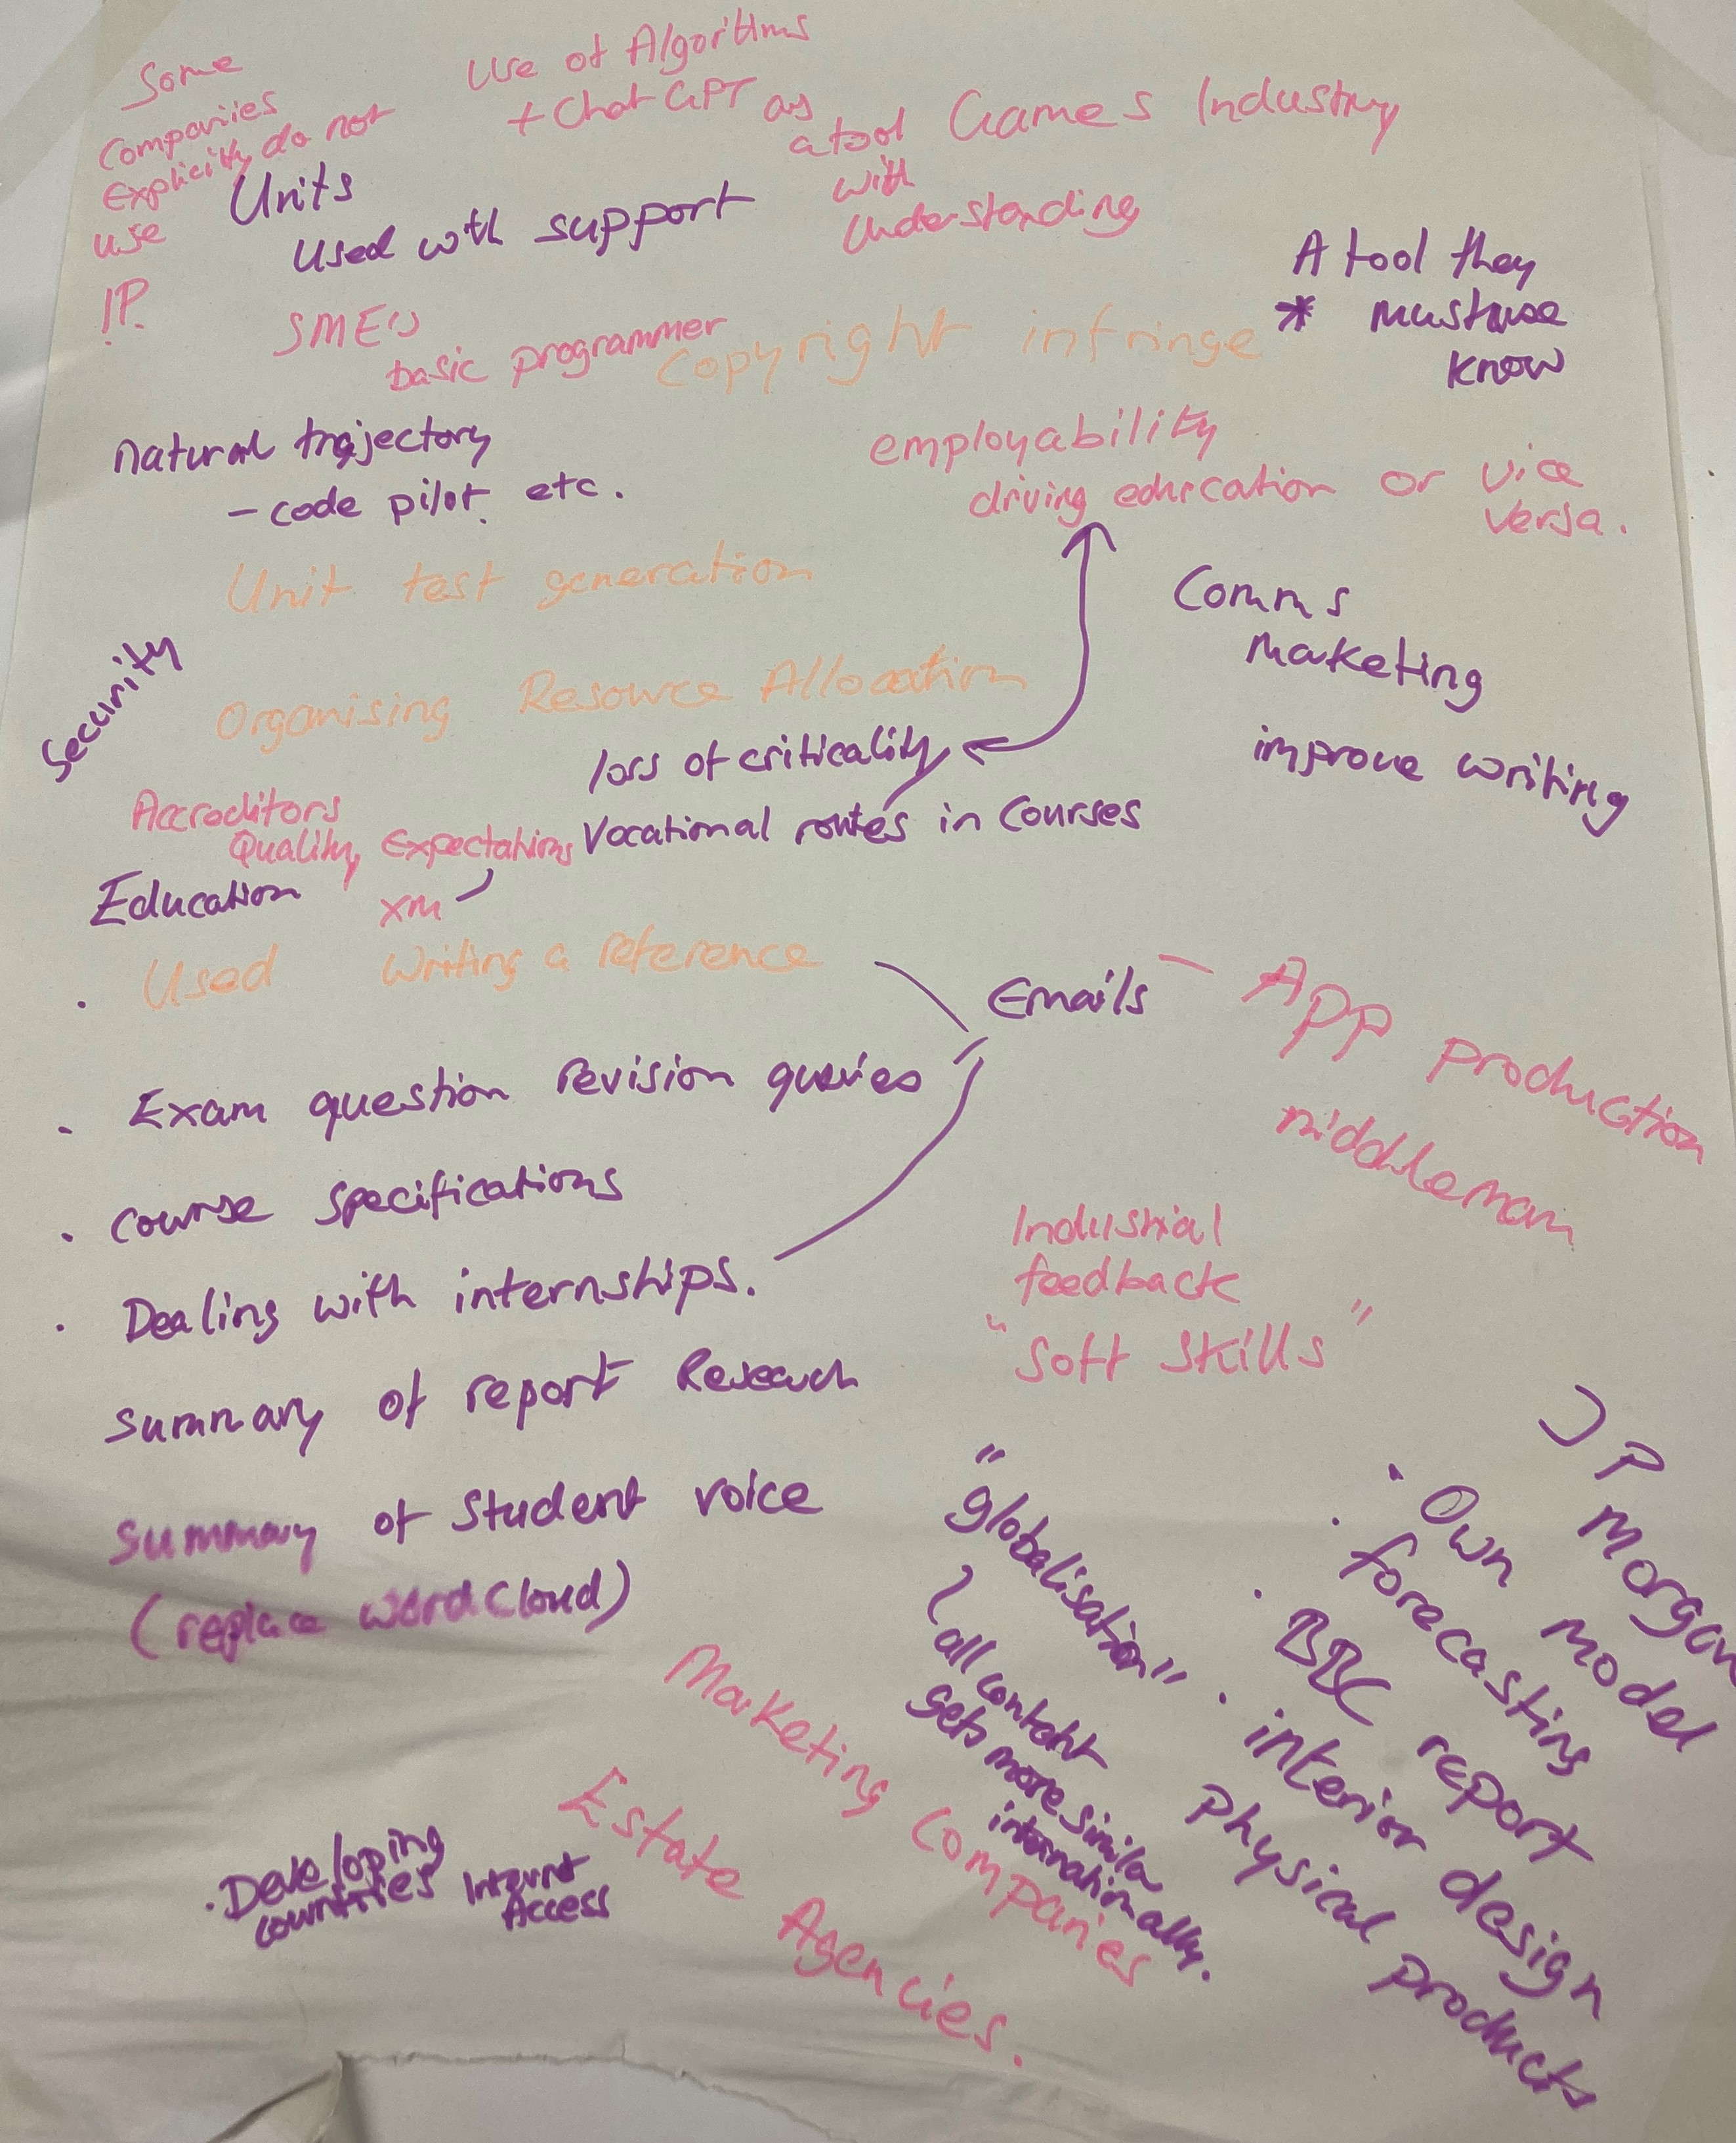 Some
Companiies
Explicitly do not
use
IP.
Use of Algorithms
+ Chat GPT as
a tool
with
Understanding
Games Industry
Units
Used with support
A tool they
* must use
know
SME's
basic programmer
Copyright infringe
natural trajectory
- code pilot. etc.
employability
driving education or vice
versa.
Unit test generation
Comms
Marketing
improve writing
Security
Organising Resource Allocation
loss of criticality
Vocational routes in Courses
Accreditors
Quality Expectations
xm
Education
. Used Writing a reference
Emails - App production
middleman
. Exam question revision queries
. course specifications
. Dealing with internships.
Industrial
feedback
"Soft Skills"
summary of report Research
summary of student voice
(replace word cloud)
"globalisation"
all content
gets more similar
internationally.
JP Morgan
. Own model
. forecasting
. BBC report
. interior design
Physical products
Marketing Companies
Estate Agencies.
. Developing
countries
Internet
Access